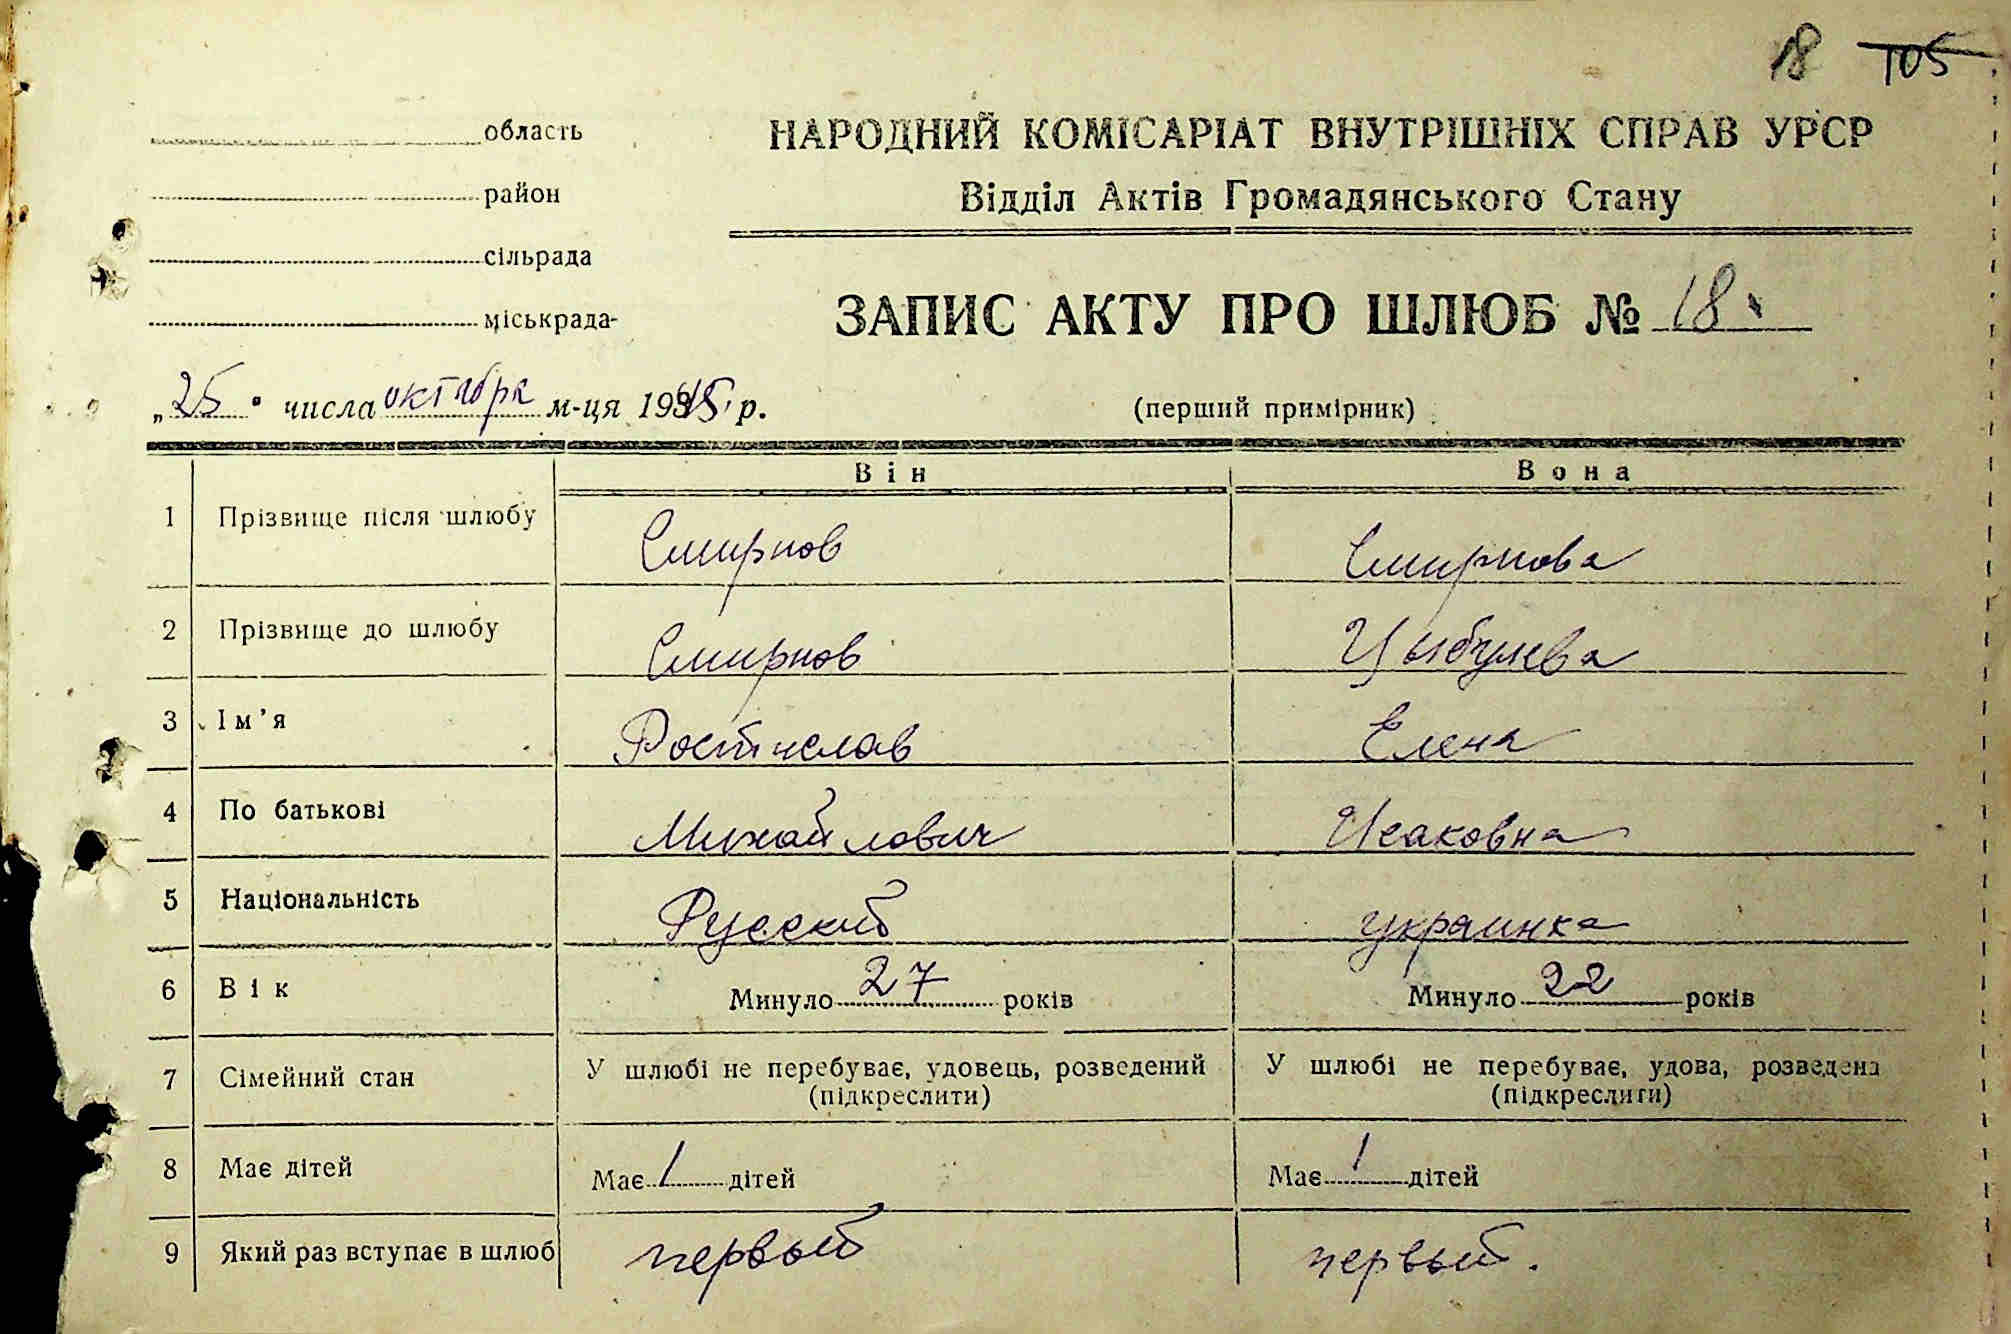 18 105
область
район
сільрада
міськрада
НАРОДНИЙ КОМІСАРІАТ ВНУТРІШНІХ СПРАВ УРСР
Відділ Актів Громадянського Стану
ЗАПИС АКТУ ПРО ШЛЮБ № 18
„25" числа октября м-ця 1945 р.
(перший примірник)
Він Вона
1 Прізвище після шлюбу Смирнов Смирнова
2 Прізвище до шлюбу Смирнов Цыбулева
3 Ім'я Ростислав Елена
4 По батькові Михайлович Исаковна
5 Національність Русский украинка
6 Вік Минуло 27 років Минуло 22 років
7 Сімейний стан У шлюбі не перебуває, удовець, розведений (підкреслити) У шлюбі не перебуває, удова, розведена (підкреслити)
8 Має дітей Має / дітей Має / дітей
9 Який раз вступає в шлюб первый первый.